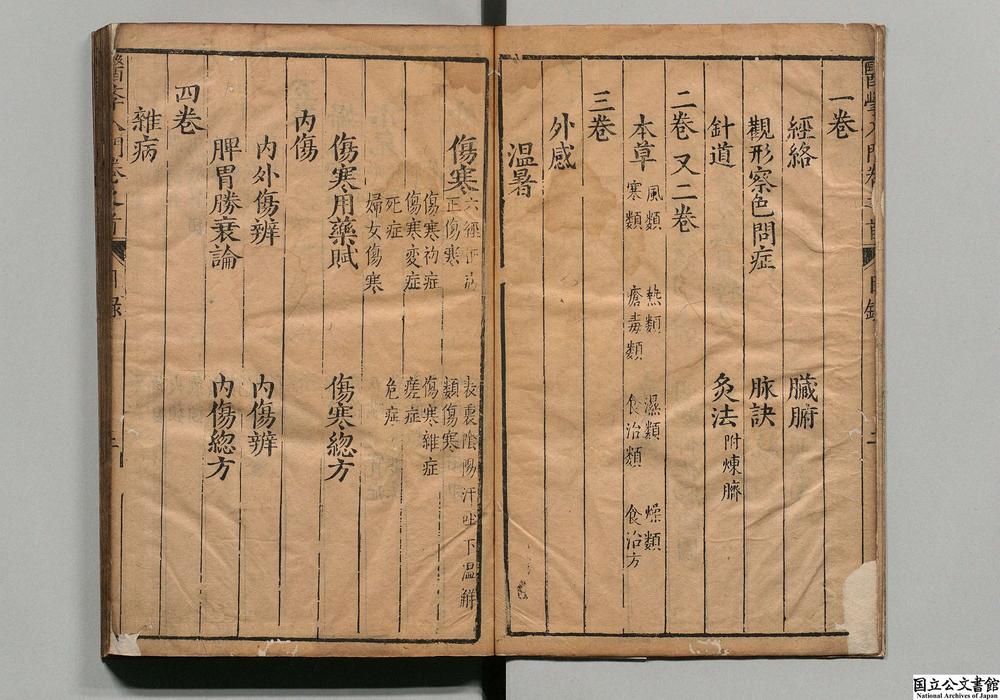 一巻
經絡 臓腑
觀形察色問症 脉訣
針道 灸法 附煉臍
二巻又二巻
本草 風類 熱類 濕類 燥類
寒類 瘡毒類 食治類 食治方
三巻
外感
温暑
傷寒 六經正病 表裏陰陽汗吐下温解
正傷寒 類傷寒
傷寒初症 傷寒雜症
傷寒変症 瘥症
死症 危症
婦女傷寒
傷寒用藥賦 傷寒總方
内傷
内外傷辨 内傷辨
脾胃勝衰論 内傷總方
四巻
雜病
醫學入門巻之首 目録
国立公文書館
National Archives of Japan